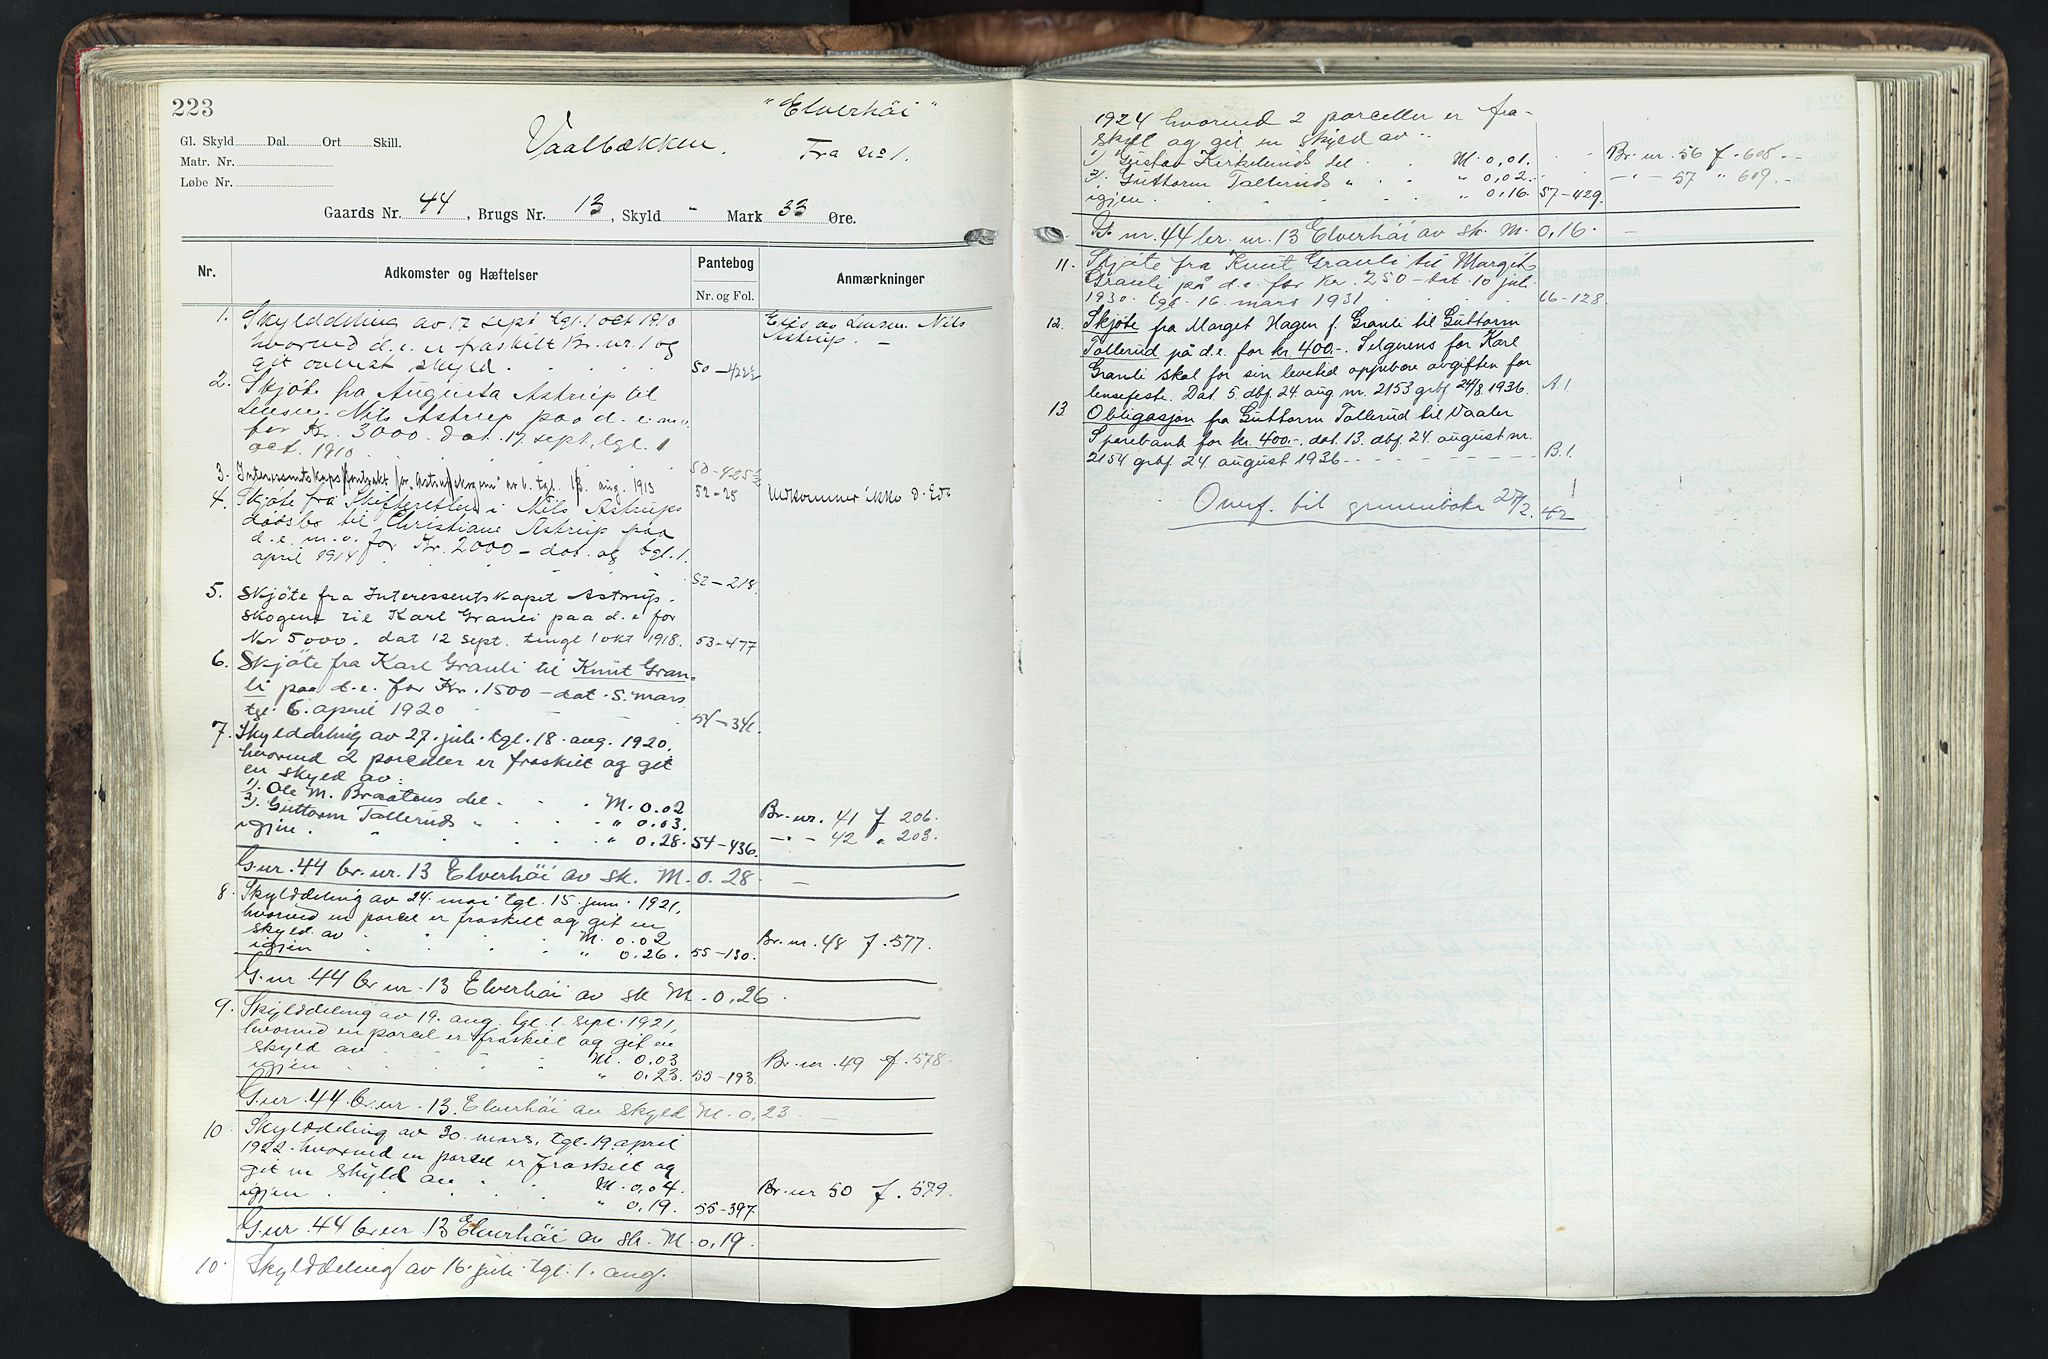 223
"Elverhöi"
Vaalbækken.
Fra no 1.
Gl. Skyld Dal. Ort Skill.
Matr. Nr.
Løbe Nr.
Gaards Nr. 44, Brugs Nr. 13, Skyld " Mark 33 Øre.
Nr. Adkomster og Hæftelser Pantebog Nr. og Fol. Anmærkninger
1. Skylddeling av 17 sept tgl. 1 oct 1910
hvorved d. e. er fraskilt Br. nr. 1 og
git ovenst skyld. 50-422
Nils Astrup.
2. Skjöte fra Augusta Astrup til
Nils Astrup paa d. e. m. v.
for Kr. 3000. dat. 17. sept. tgl. 1
oct. 1910. 50-425
3. Interessentskapskontrakt for "Astrupskogen" av 6. tgl. 13. aug. 1913 52-25 Vedkommer ikke d. Ed.
4. Skjöte fra Skifteretten i Nils Astrups
dödsbo til Christiane Astrup paa
d. e. m. v. for Kr. 2000- dat. og tgl. 1.
april 1914. 52-218.
5. Skjöte fra Interessentskapet Astrup-
skogene til Karl Granli paa d. e for
Kr 5000. dat 12 sept. tingl 1 okt 1918. 53-477
6. Skjöte fra Karl Granli til Knut Gran-
li paa d. e. for Kr. 1500 - dat. 5. mars
tgl. 6. april 1920 54-341.
7. Skylddeling av 27. juli tgl. 18. aug. 1920,
hvorved 2 parceller er fraskilt og git
en skyld av:
1). Ole M. Braatens del M. 0.02 Br. nr. 41 f 206.
2). Guttorm Tolleruds " " 0.03. -"- 42 " 203.
igjen " 0.28. 54-436.
G. nr. 44 br. nr. 13 Elverhöi av sk. M. 0.28.
8. Skylddeling av 24. mai tgl. 15. juni 1921,
hvorved en parcel er fraskilt og git en
skyld av M. 0.02 Br. nr. 48 f. 577.
igjen " 0.26. 55-130.
G. nr. 44 br. nr. 13 Elverhöi av sk M. 0,26.
9. Skylddeling av 19. aug. tgl. 1. sept. 1921,
hvorved en parcel er fraskilt og git en
skyld av M. 0,03 Br. nr. 49 f. 578
igjen " 0,23. 55-193.
G. nr. 44 br. nr. 13 Elverhöi av skyld M. 0,23.
10 Skylddeling av 30. mars, tgl. 19. april
1922. hvorved en parcel er fraskilt og
git en skyld av M. 0,04. Br. nr 50 f. 579.
igjen " 0,19. 55-397
G. nr. 44 br. nr. 13 Elverhöi av sk. M. 0,19.
10. Skylddeling av 16. juli tgl. 1. aug.
1924 hvorved 2 parceller er fra-
skilt og git en skyld av:
1) Gustav Kirkelunds del M. 0,01. Br. nr. 56 f. 608
2). Guttorm Tolleruds " " 0,02. -"- 57 " 609.
igjen " 0,16. 57-429.
G. nr. 44 br. nr. 13 Elverhöi av sk. M. 0,16.
11. Skjöte fra Knut Granli til Margit
Granli på d. e. for kr. 250- dat. 10 juli
1930. tgl. 16. mars 1931 66-128.
12. Skjöte fra Margit Hagen f. Granli til Guttorm
Tollerud på d. e. for kr. 400.-. Selgerens far Karl
Granli skal for sin levetid oppebære avgiften for
lensefeste. Dat. 5. dbf. 24. aug nr. 2153 grbf 24/8 1936. A.1.
13 Obligasjon fra Guttorm Tollerud til Vaaler
Sparebank for kr. 400.-. dat. 13. dbf. 24. august nr.
2154 grbf. 24. august 1936 B.1.
Overf. til grunnboka 27/2. 42